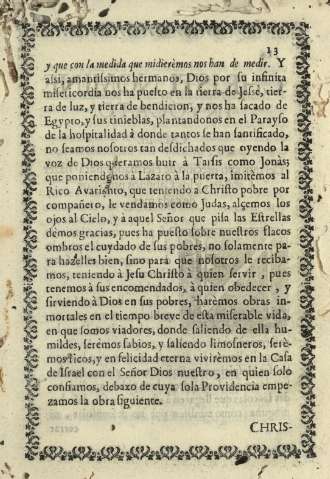 13
y que con la medida que midierèmos nos han de medir. Y
assi, amantissimos hermanos, Dios por su infinita
misericordia nos ha puesto en la tierra de Jesse, tier-
ra de luz, y tierra de bendicion, y nos ha sacado de
Egypto, y sus tinieblas, plantandonos en el Parayso
de la hospitalidad à donde tantos se han santificado,
no seamos nosotros tan desdichados que oyendo la
voz de Dios queramos huir à Tarsis como Jonàs;
que poniendonos à Lazaro à la puerta, imitèmos al
Rico Avariento, que teniendo a Christo pobre por
compañero, le vendamos como Judas, alçemos los
ojos al Cielo, y à aquel Señor que pisa las Estrellas
démos gracias, pues ha puesto sobre nuestros flacos
ombros el cuydado de sus pobres, no solamente pa-
ra hazelles bien, sino para que nosotros le reciba-
mos, teniendo à Jesu Christo à quien servir, pues
tenemos à sus encomendados, à quien obedecer, y
sirviendo à Dios en sus pobres, harèmos obras in-
mortales en el tiempo breve de esta miserable vida,
en que somos viadores, donde saliendo de ella hu-
mildes, serèmos sabios, y saliendo limosneros, serè-
mos ricos, y en felicidad eterna vivirèmos en la Casa
de Israel con el Señor Dios nuestro, en quien solo
confiamos, debaxo de cuya sola Providencia empe-
zamos la obra siguiente.
CHRIS-